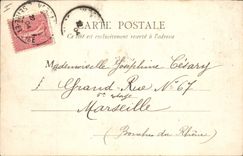 CARTE POSTALE
Ce côté est exclusivement réservé à l'adresse
Mademoiselle Joséphine Césary
Grand-Rue N° 67
2e étage
Marseille
(Bouches du Rhône)